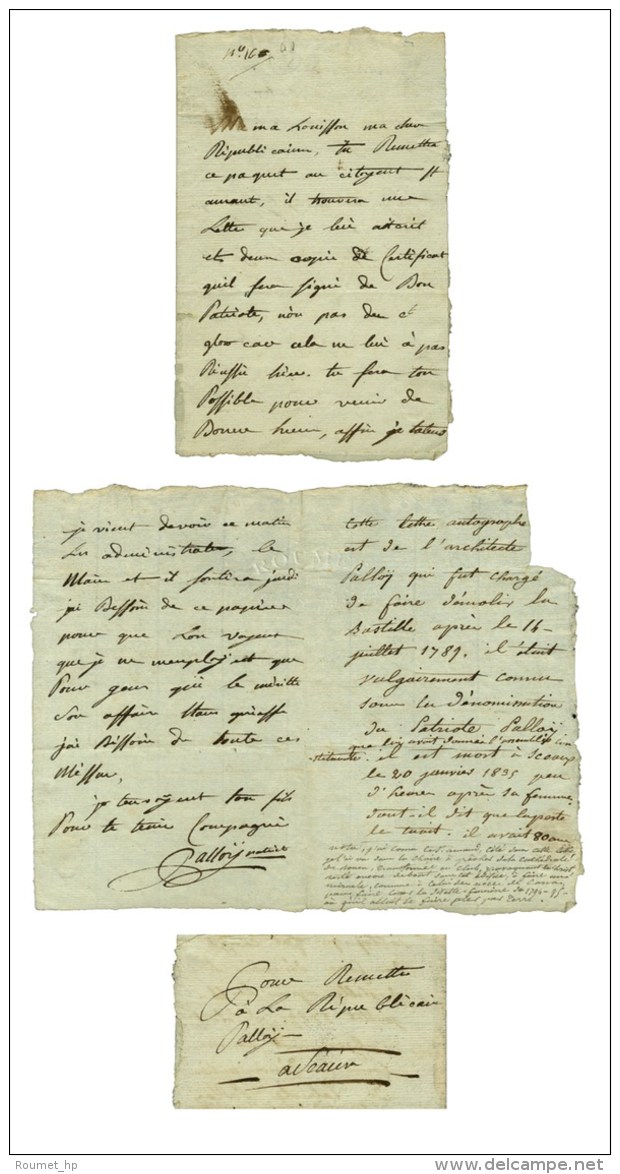 No. 16
ma Louisson ma cher
Républicaine, tu Remettra
ce paquet au citoyent St
amant, il trouvera une
Lettre que je lui aitorit
et deux copie de Certificat
quil fera signé de Bon
Patriote, non pas de
car cela ne lui à pas
Réussie hier. tu fera ton
Possible pour venir de
Bonne heure, affin je
je vient devoir ce matin
Les administrate, le
Maire et il sortira jeudi
jai Bessoin de ce papiers
pour que Lon voyent
que je ne menploÿ et que
Pour gens qui le méritte
Son affair
jai Bessoin de toute ces
Messur,
je tenvoyent ton fils
Pour te tenir Compagnie
Palloÿ
Cette lettre autographe
est de l'architecte
Palloÿ qui fut chargé
de faire démolir la
Bastille après le 14
juillet 1789. il était
vulgairement connu
sous la dénomination
du Patriote Palloÿ
que lui avait donnée l'assemblée con
stituante. il est mort à Sceaux
le 20 janvier 1835 peu
d'heures après sa femme
dont-il dit que la perte
le tuait. il avait 80 ans
Pour Remettre
à La Républicain
Palloÿ
a Sceaux
Roumet_hp
www.delcampe.net